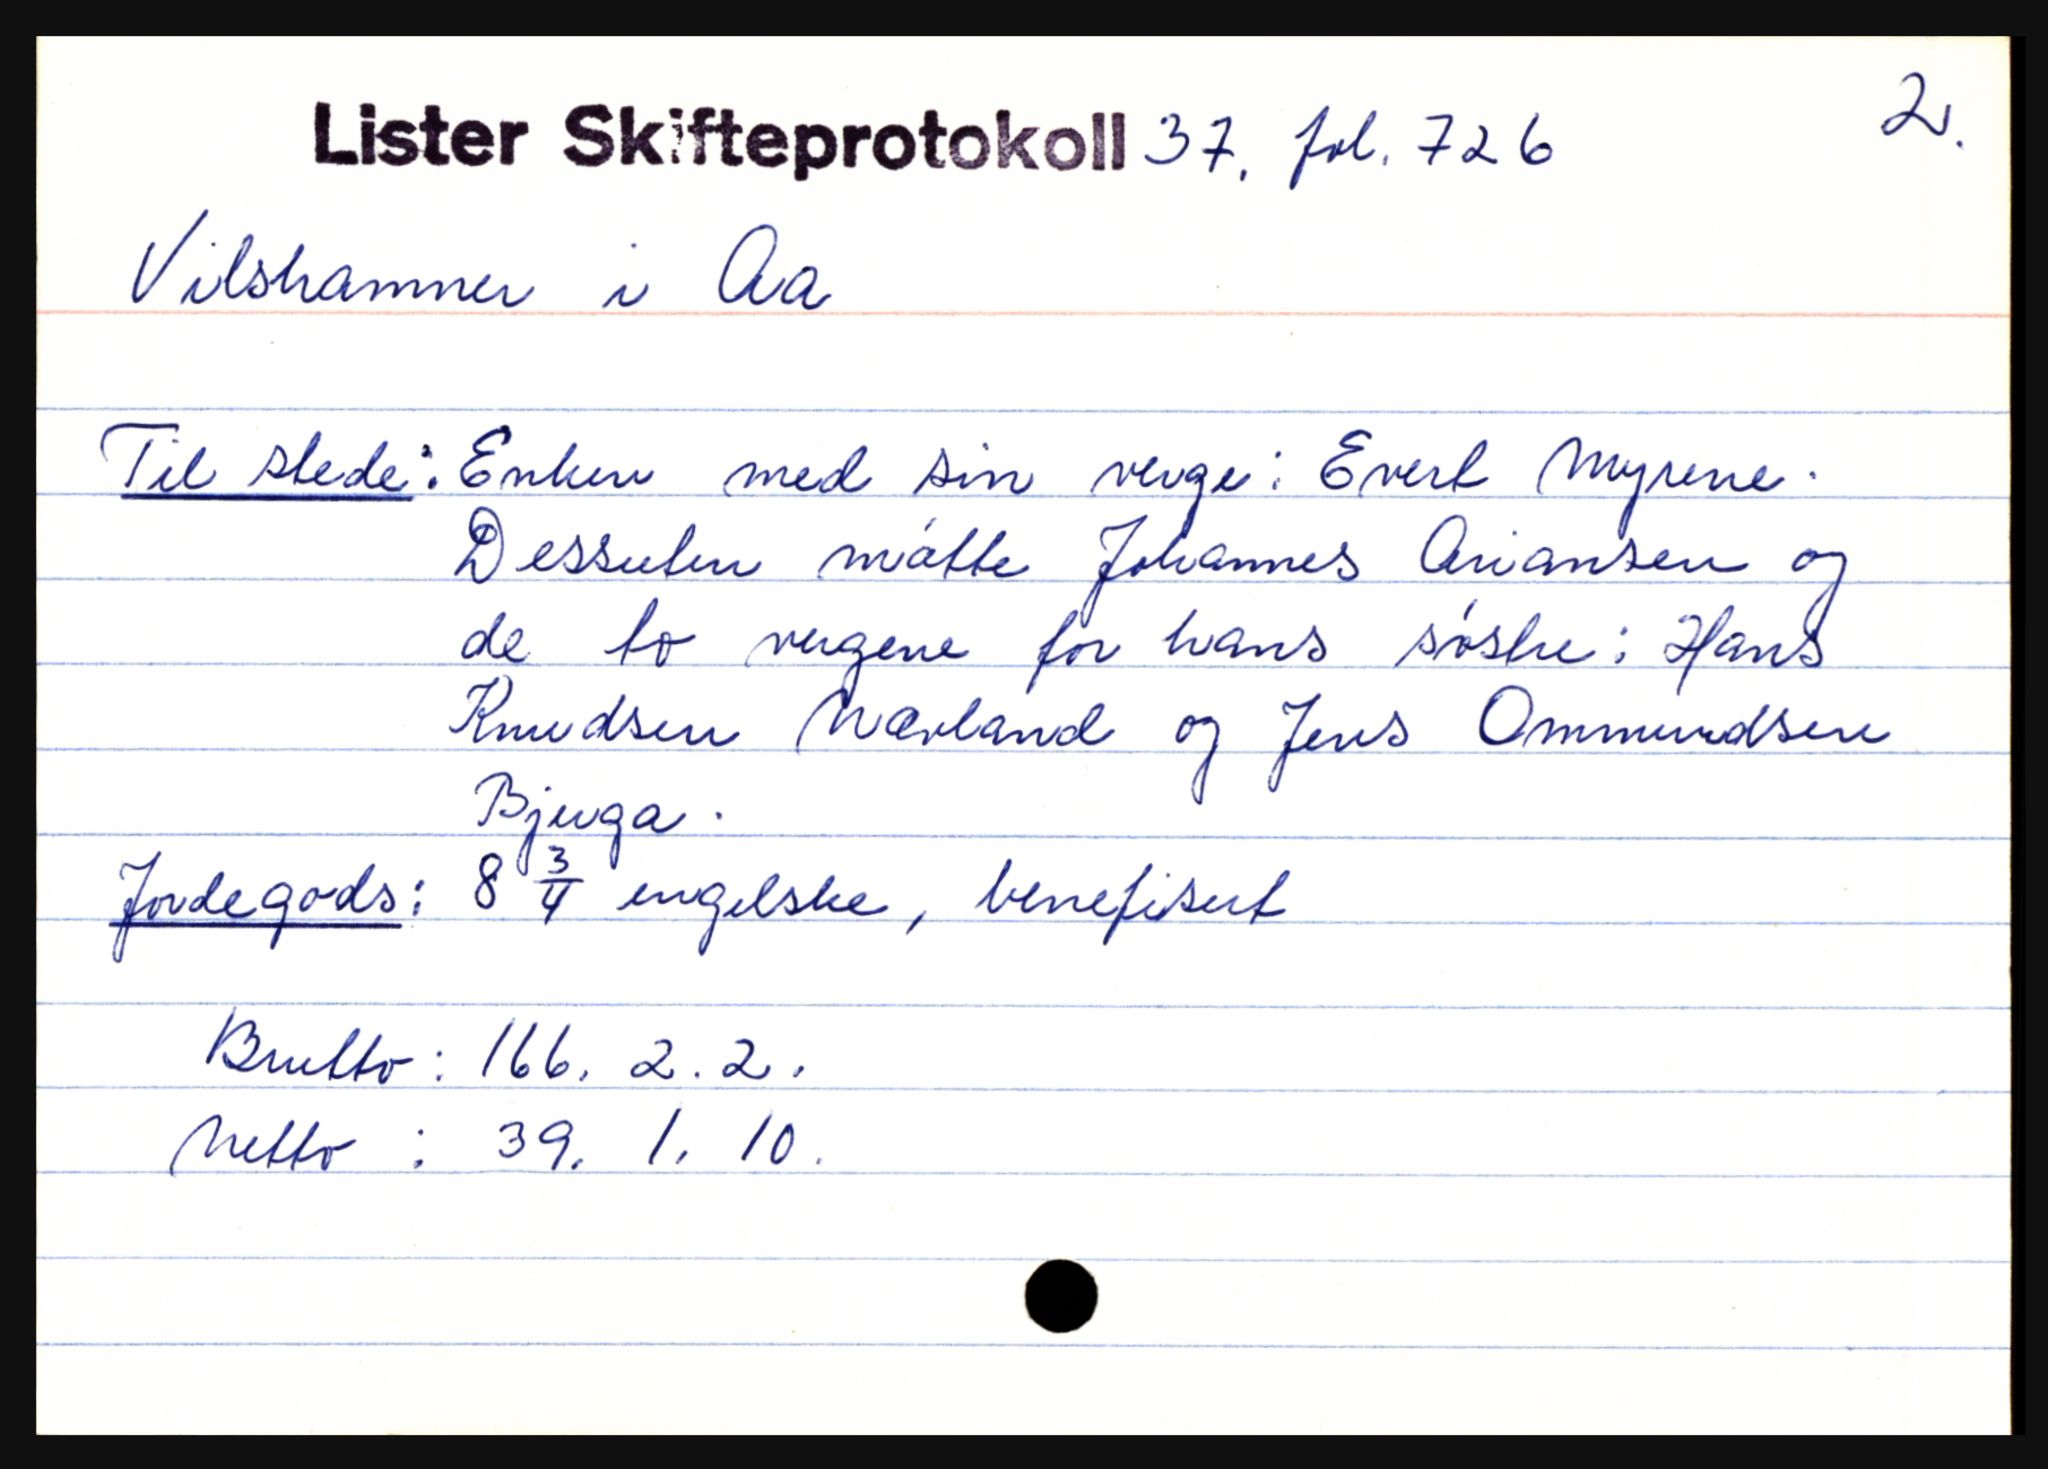 2.
Lister Skifteprotokoll 37, fol. 726
Vilshammer i Aa
Til stede: Enken med sin verge: Evert Myrene.
Dessuten møtte Johannes Ariansen og
de to vergene for hans søske: Hans
Knudsen Nærland og Jens Ommundsen
Bjerga.
Jordegods: 8 3/4 engelske, benefisert
Brutto: 166. 2. 2.
Netto: 39. 1. 10.